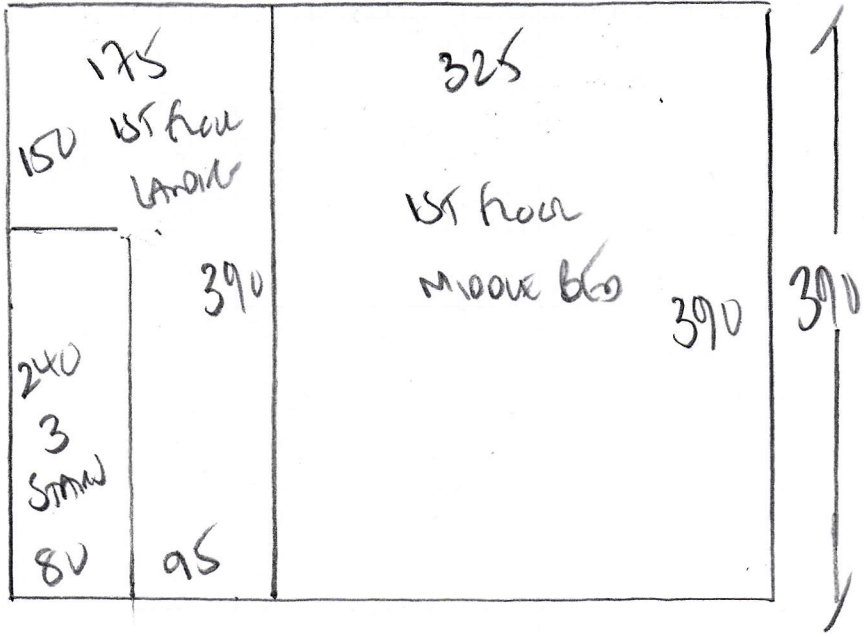 175
150
1ST FLOOR
LANDING
390
240
3
STAIRS
80
95
325
1ST FLOOR
MIDDLE BED
390
390